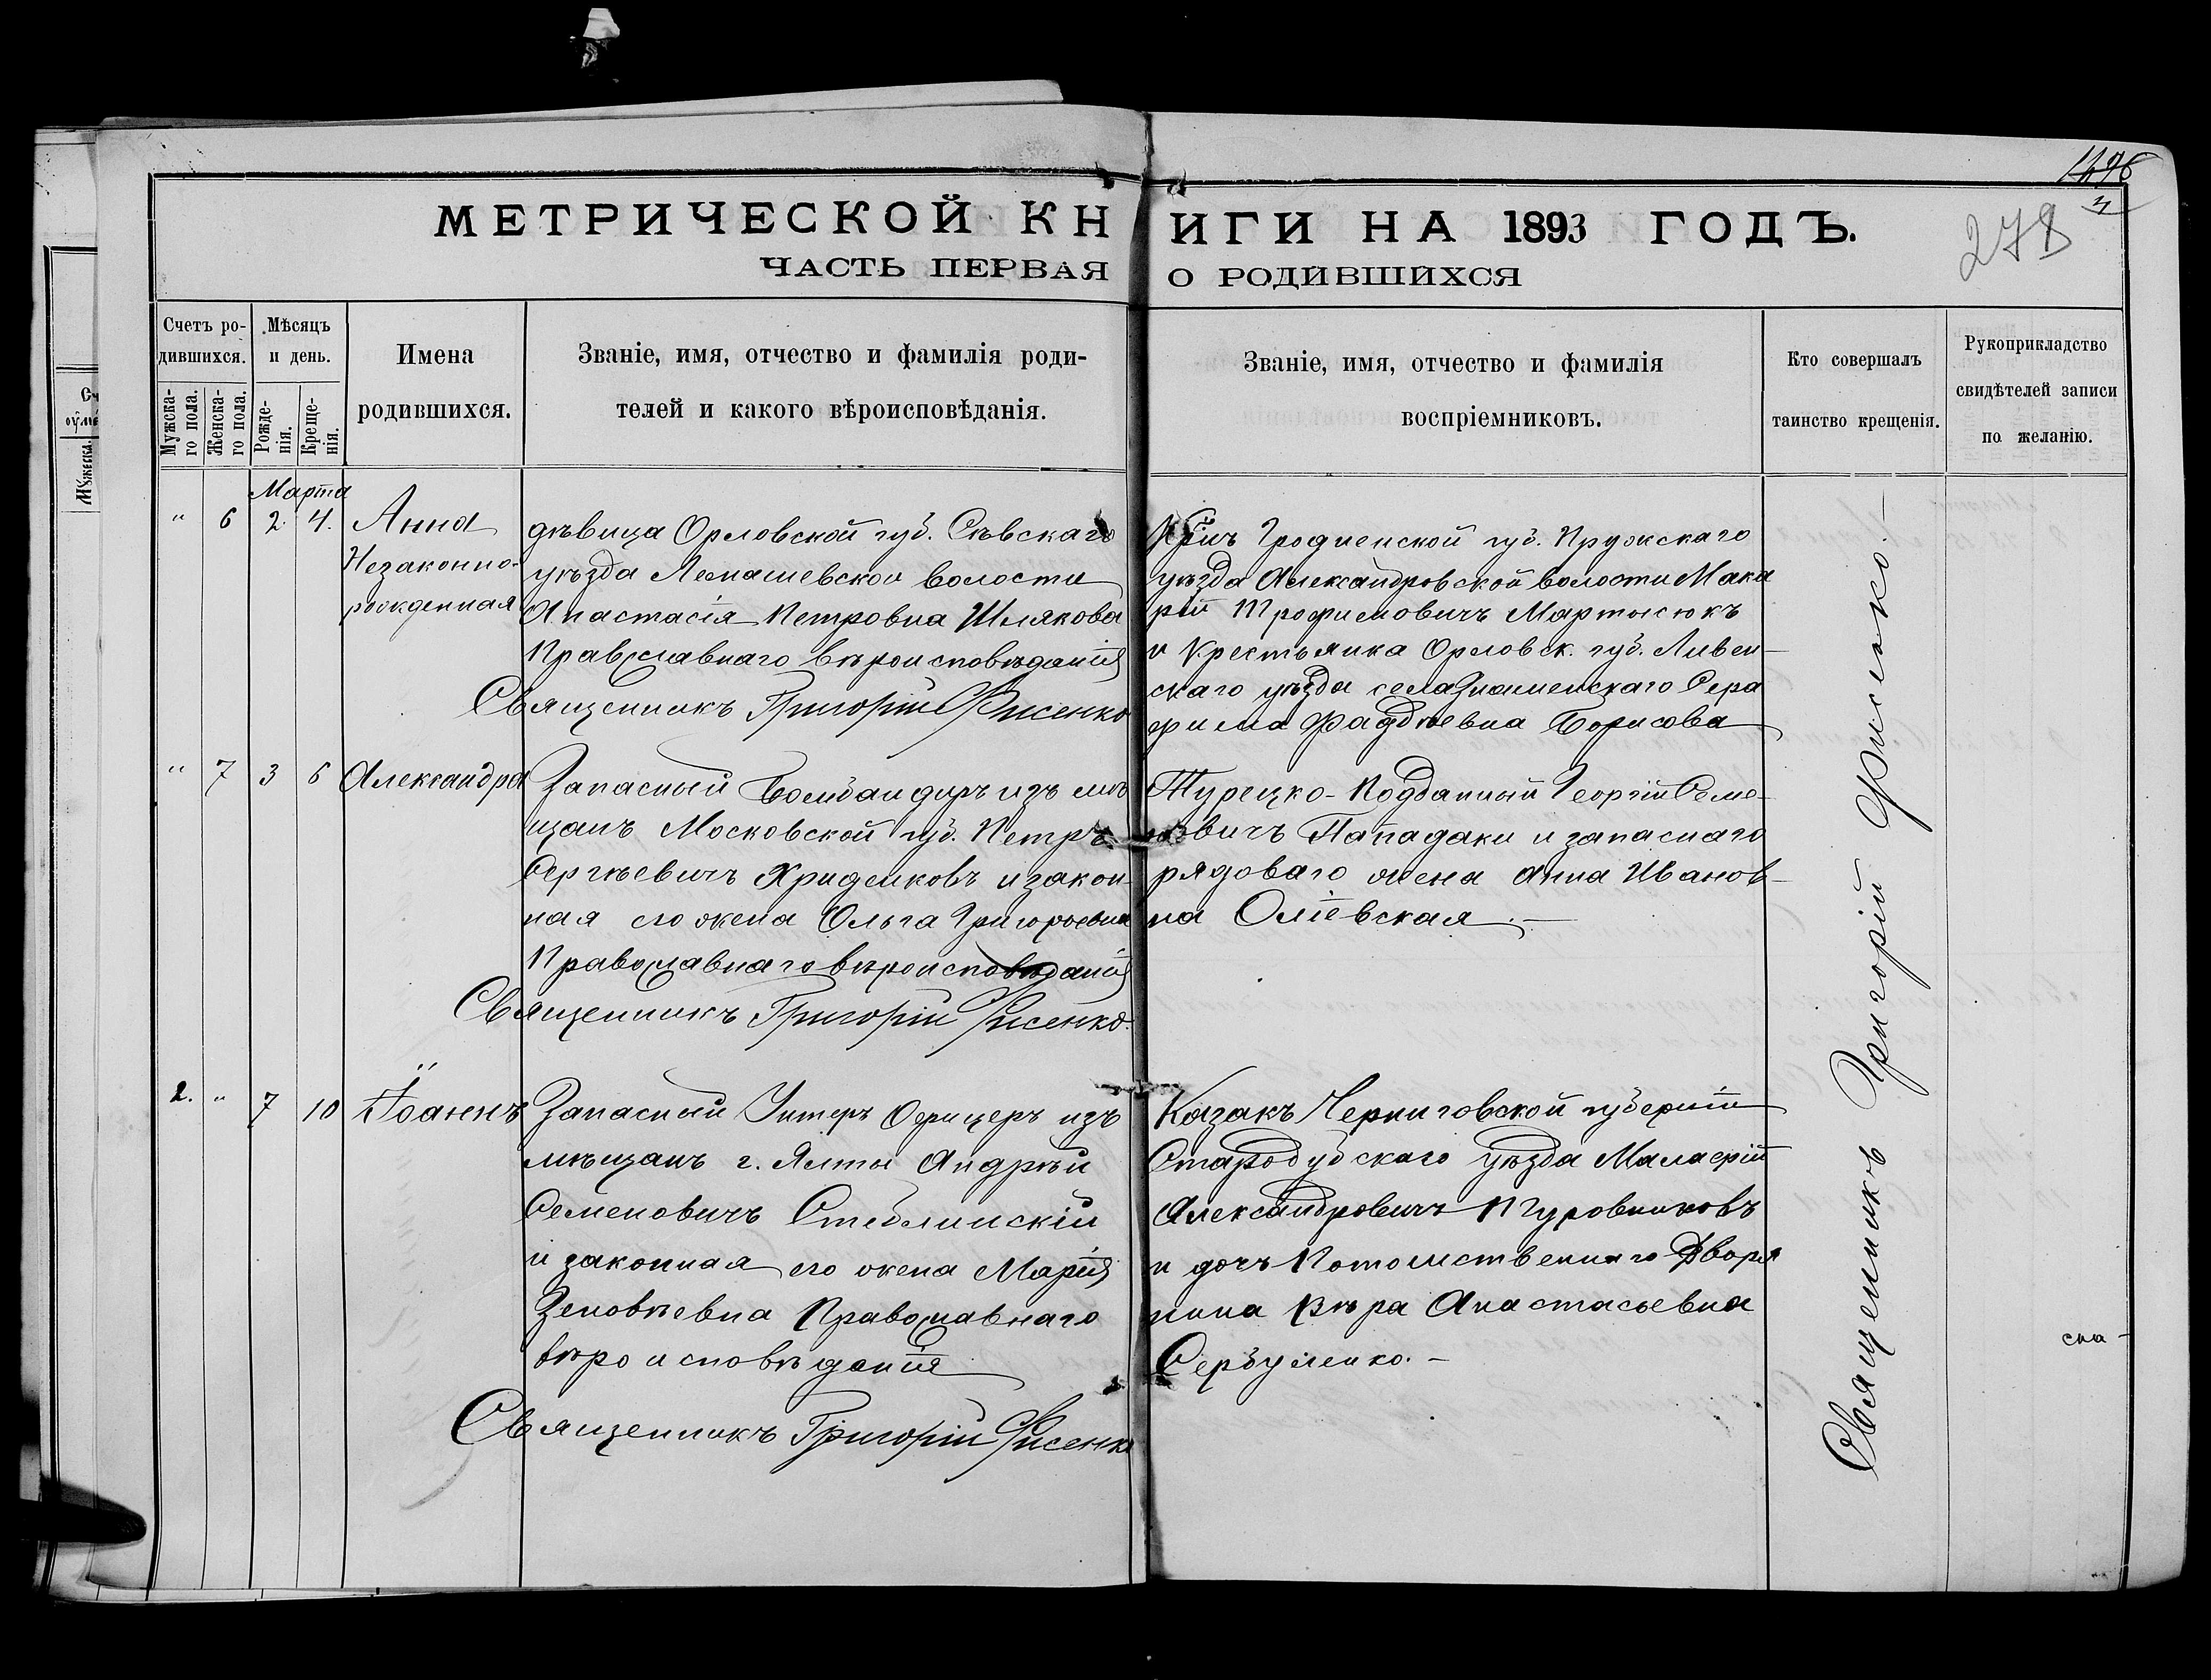 1496
278
МЕТРИЧЕСКОЙ КНИГИ НА 1893 ГОДЪ.
ЧАСТЬ ПЕРВАЯ О РОДИВШИХСЯ
Счетъ ро-
дившихся.
Мужска-
го пола.
Женска-
го пола.
Мѣсяцъ
и день.
Рожде-
нія.
Креще-
нія.
Имена
родившихся.
Званіе, имя, отчество и фамилія роди-
телей и какого вѣроисповѣданія.
Званіе, имя, отчество и фамилія
воспріемниковъ.
Кто совершалъ
таинство крещенія.
Рукоприкладство
свидѣтелей записи
по желанію.
Марта
" 6 2. 4.
Анна
Незаконно-
рожденная
дѣвица Орловской губ. Сѣвскаго
уѣзда Лемашевской волости
Анастасія Петровна Шлякова
Православнаго вѣроисповѣданія
Священникъ Григорій Фисенко
Кр̃инъ Гродненской губ. Пружскаго
уѣзда Александровской волости Мака
рій Трофимовичъ Мартысюкъ
и Крестьянка Орловск. губ. Ливен-
скаго уѣзда села Знаменскаго Сера
фима Фаддѣевна Борисова
" 7 3 6
Александра
Запасный Бомбандиръ изъ мѣ
щанъ Московской губ. Петръ
Сергѣевичъ Хриденковъ и закон-
ная его жена Ольга Григорьевна
Православнаго вѣроисповѣданія
Священникъ Григорій Фисенко.
Турецко-Подданный Георгій Семе-
новичъ Пападаки и запаснаго
рядоваго жена Анна Иванов-
на Оліевская.-
2. " 7 10
Іоаннъ
Запасный Унтеръ Офицеръ изъ
мѣщанъ г. Ялты Андрѣй
Семеновичъ Стеблинскій
и законная его жена Марія
Зеновѣевна Православнаго
вѣроисповѣданія
Священникъ Григорій Фисенко
Казакъ Черниговской губерніи
Стародубскаго уѣзда Малафій
Александровичъ Пуровниковъ
и дочь Потомственнаго Дворя
нина Вѣра Анастасьевна
Сербуленко.-
Священникъ Григорій Фисенко.-